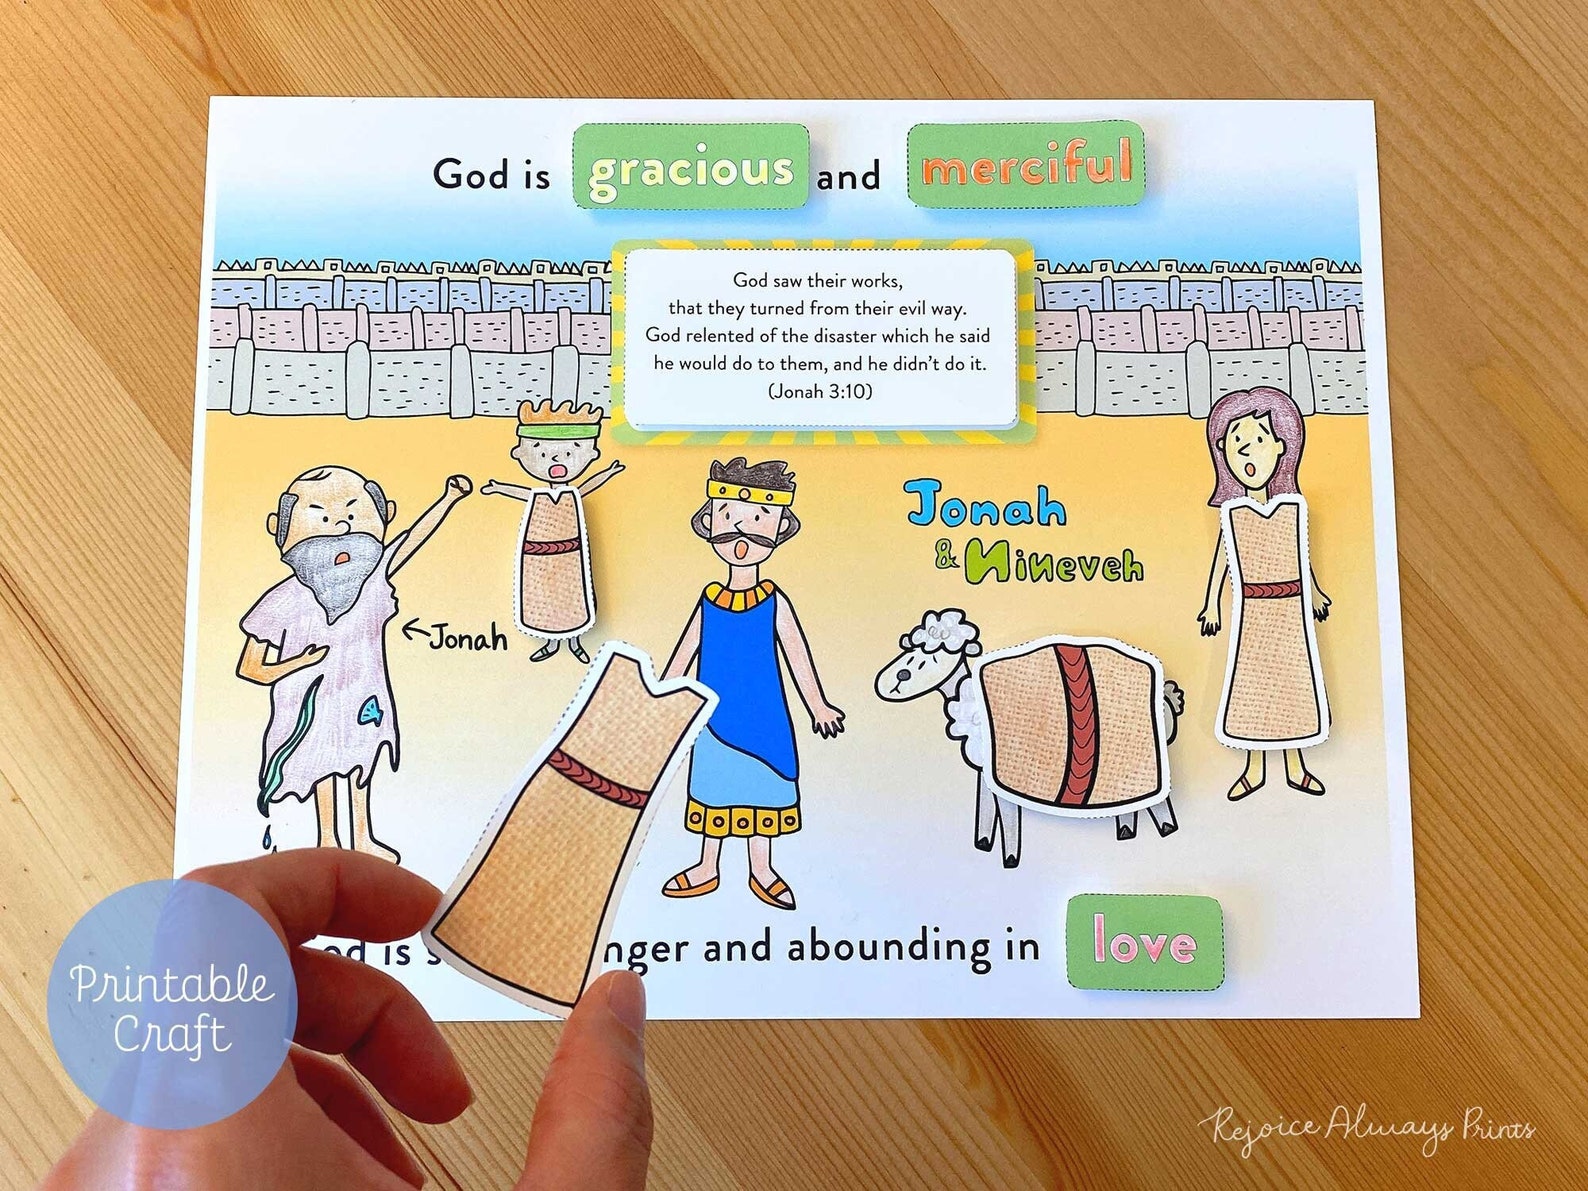 God is gracious and merciful
God saw their works,
that they turned from their evil way.
God relented of the disaster which he said
he would do to them, and he didn't do it.
(Jonah 3:10)
Jonah
& Nineveh
←Jonah
is and abounding in love
Printable
Craft
Rejoice Always Prints